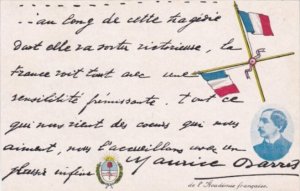 .. au long de cette tragédie
dont elle va sortir victorieuse, la
France voit tout avec une
sensibilité frémissante. Tout ce
qui nous vient des cœurs qui nous
aiment, nous l'accueillons avec un
plaisir infini
Maurice Barrès
de l'Académie française.